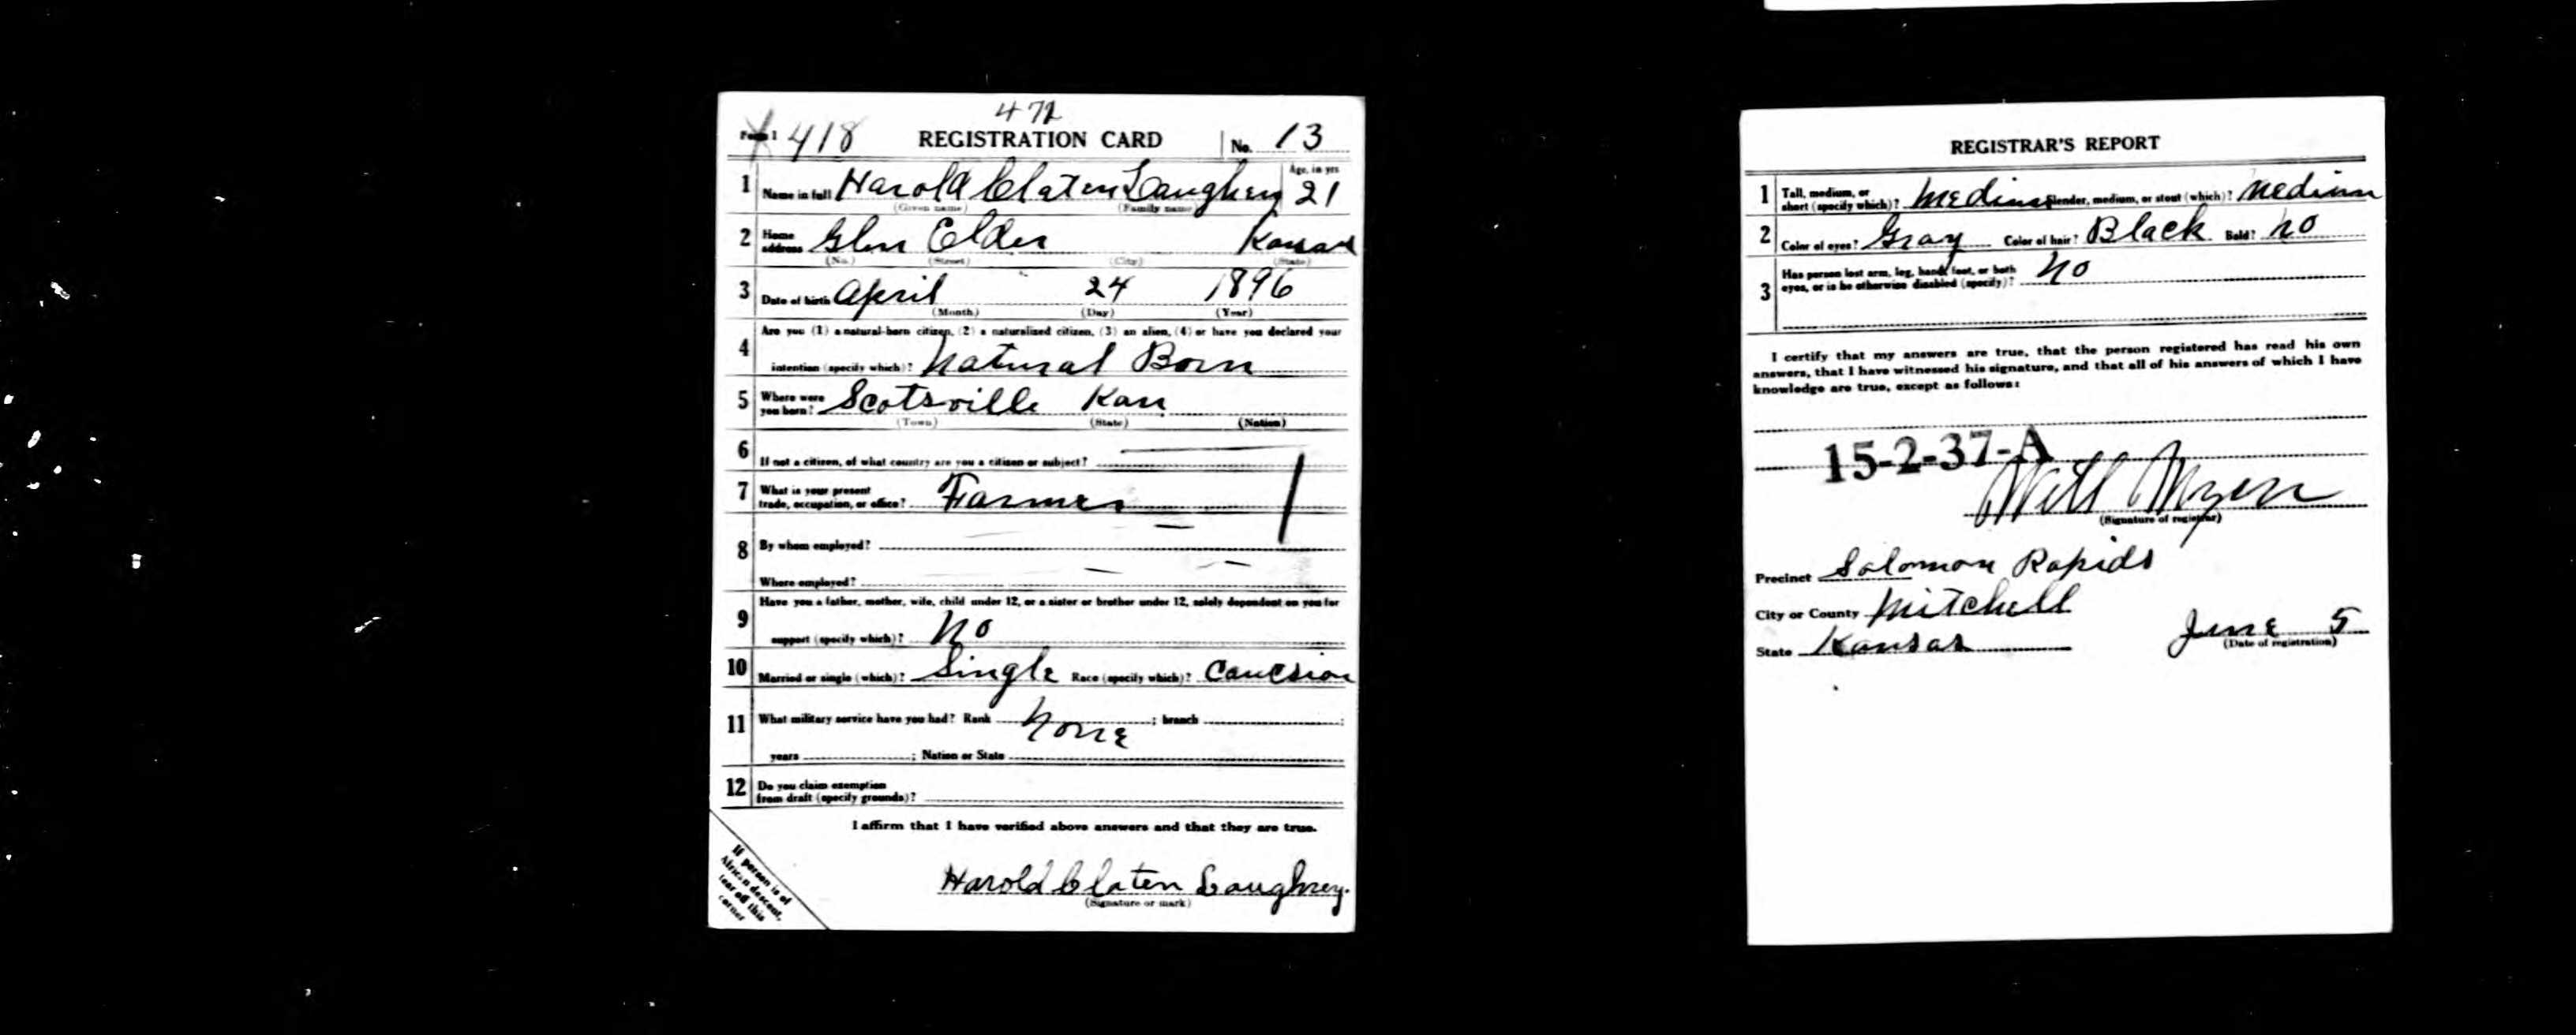 472
Form 1 418 REGISTRATION CARD No. 13
1 Name in full Harold Claten Laughrey Age, in yrs 21
(Given name) (Family name)
2 Home address Glen Elder Kansas
(No.) (Street) (City) (State)
3 Date of birth April 24 1896
(Month) (Day) (Year)
4 Are you (1) a natural-born citizen, (2) a naturalized citizen, (3) an alien, (4) or have you declared your
intention (specify which)? Natural Born
5 Where were you born? Scotsville Kan
(Town) (State) (Nation)
6 If not a citizen, of what country are you a citizen or subject?
7 What is your present trade, occupation, or office? Farmer
8 By whom employed?
Where employed?
9 Have you a father, mother, wife, child under 12, or a sister or brother under 12, solely dependent on you for
support (specify which)? No
10 Married or single (which)? Single Race (specify which)? Caucsion
11 What military service have you had? Rank None ; branch ;
years ; Nation or State
12 Do you claim exemption
from draft (specify grounds)?
I affirm that I have verified above answers and that they are true.
Harold Claten Laughrey.
(Signature or mark)
If person is of
African descent,
tear off this
corner
REGISTRAR'S REPORT
1 Tall, medium, or
short (specify which)? Medium Slender, medium, or stout (which)? Medium
2 Color of eyes? Gray Color of hair? Black Bald? No
3 Has person lost arm, leg, hand, foot, or both
eyes, or is he otherwise disabled (specify)? No
I certify that my answers are true, that the person registered has read his own
answers, that I have witnessed his signature, and that all of his answers of which I have
knowledge are true, except as follows:
15-2-37-A
Will Myers
(Signature of registrar)
Precinct Solomon Rapids
City or County Mitchell
State Kansas June 5
(Date of registration)